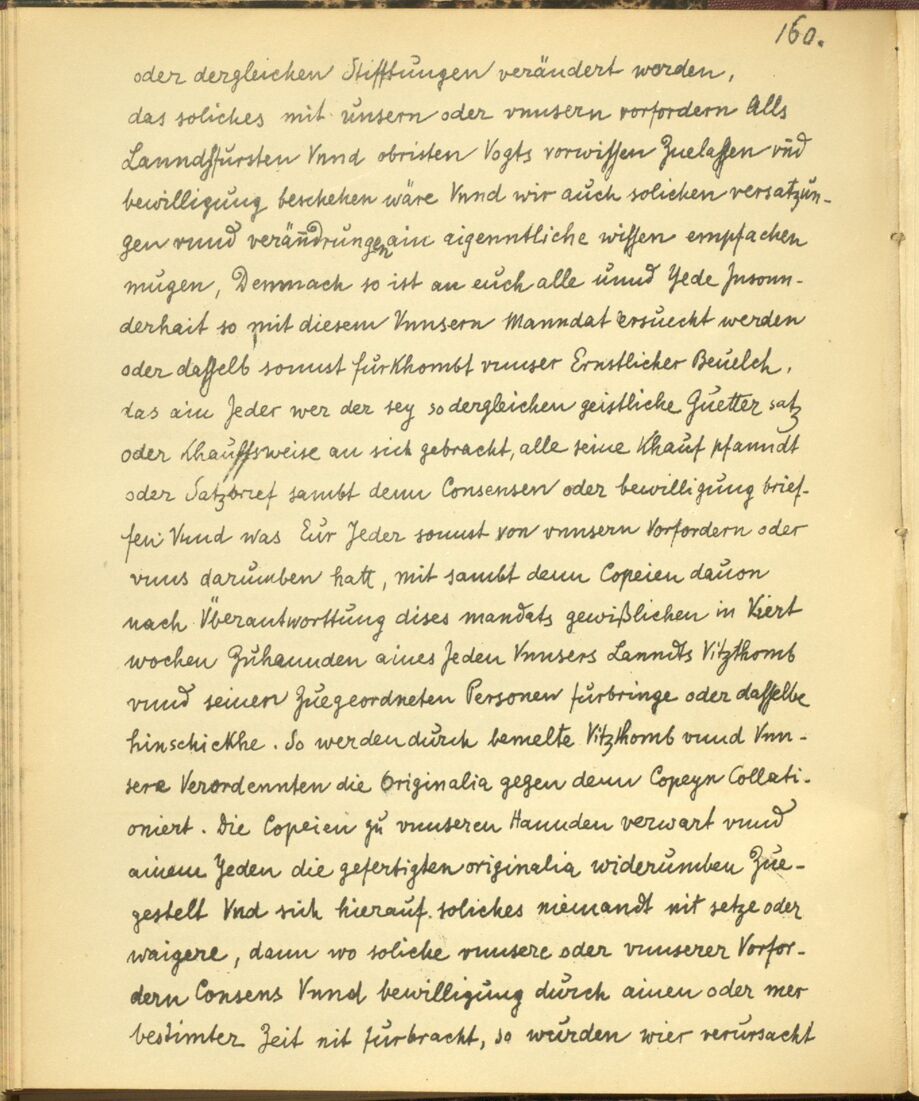 160.
oder dergleichen Stifftungen verändert worden,
das soliches mit unsern oder vnnsern vorfordern Alls
Lanndsfursten Vnnd obristen Vogts vorwissen Zuelassen vnd
bewilligung beschehen wäre Vnnd wir auch solichen versatzun-
gen vnnd veränndrungen ain aigenntliche wissen empfachen
mugen, Demnach so ist an euch alle unnd Yede Jnsonn-
derhait so mit diesem Vnnsern Manndat ersuecht werden
oder dasselb sonnst furkhombt vnnser Ernstlicher Beuelch,
das ain Jeder wer der sey so dergleichen geistliche Guetter satz
oder Khauffsweise an sich gebracht, alle seine Khauf pfanndt
oder Satzbrief sambt denn Consensen oder bewilligung brief-
fen Vnnd was Eur Jeder sonnst von vnnsern Vorfordern oder
vnns darumben hatt, mit sambt denn Copeien dauon
nach Überantworttung dises mandats gewißlichen in Viert
wochen Zuhannden aines Jeden Vnnsers Lanndts Vitzthomb
vnnd seinen Zuegeordneten Personen furbringe oder dasselbe
hinschickhe. So werden durch bemelte Vitzthomb vnnd Vnn-
sere Verordennten die Originalia gegen denn Copeyn Collati-
oniert. Die Copeien zu vnnseren Hannden verwart vnnd
ainem Jeden die gefertigten originalia widerumben Zue-
gestelt Vnd sich hierauf soliches niemandt nit setze oder
waigere, dann wo soliche vnnsere oder vnnserer Vorfor-
dern Consens Vnnd bewilligung durch ainen oder mer
bestimter Zeit nit furbracht, so wurden wier verursacht